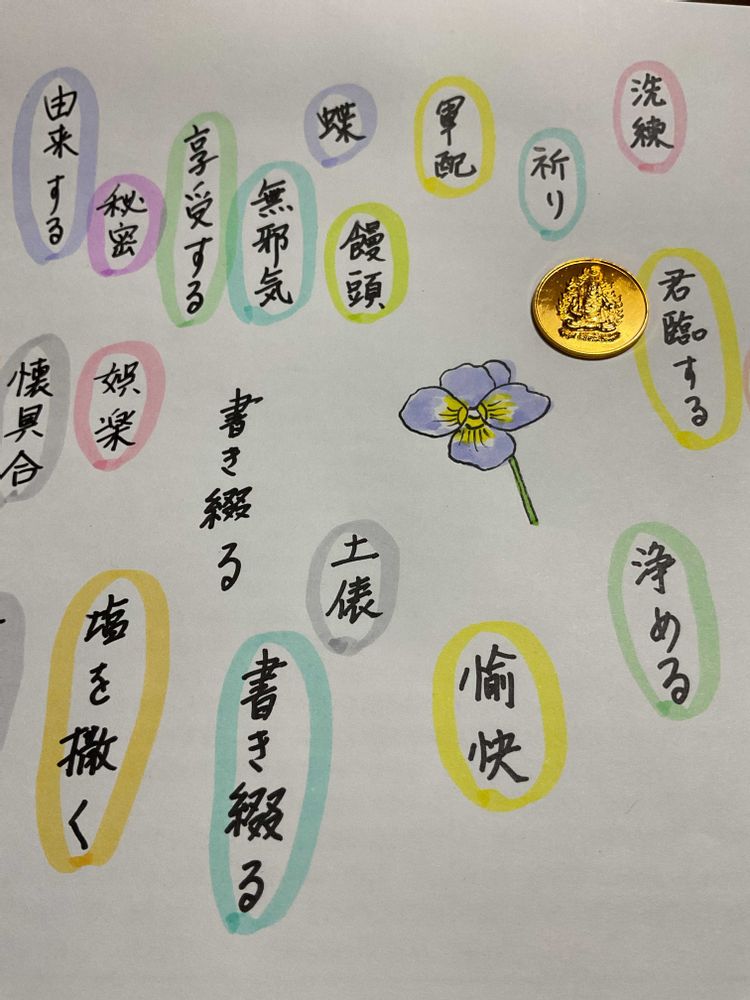 洗練
祈り
軍配
蝶
君臨する
饅頭
無邪気
享受する
秘密
由来する
書き綴る
娯楽
懐具合
浄める
愉快
土俵
書き綴る
塩を撒く